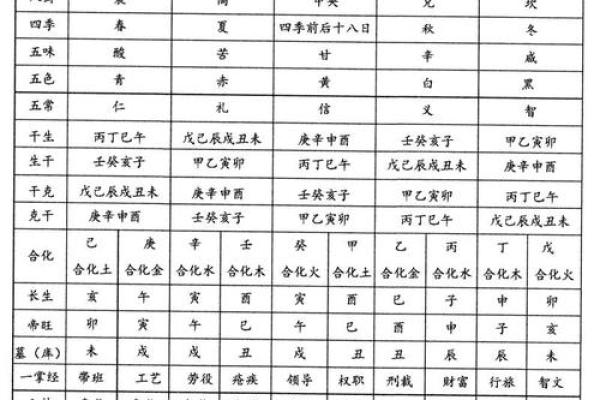 中央 兑 坎
四季 春 夏 四季前后十八日 秋 冬
五味 酸 苦 甘 辛 咸
五色 青 赤 黄 白 黑
五常 仁 礼 信 义 智
干生 丙丁巳午 戊己辰戌丑未 庚辛申酉 壬癸亥子 甲乙寅卯
生干 壬癸亥子 甲乙寅卯 丙丁巳午 戊己辰戌丑未 庚辛申酉
干克 戊己辰戌丑未 庚辛申酉 壬癸亥子 甲乙寅卯 丙丁巳午
克干 庚辛申酉 壬癸亥子 甲乙寅卯 丙丁巳午 戊己辰戌丑未
己 庚 辛 壬 癸 甲 乙 丙 丁 戊
合化
合化土 合化金 合化水 合化木 合化火 合化土 合化金 合化水 合化木 合化火
长生 亥 午 寅 酉 寅 酉 巳 子 申 卯
帝旺 卯 寅 午 巳 午 巳 酉 申 子 亥
墓（库） 未 戌 戌 丑 戌 丑 丑 辰 辰 未
一掌经 带班 工艺 劳役 疮疾 领导 权职 刑裁 财富 行旅 智文